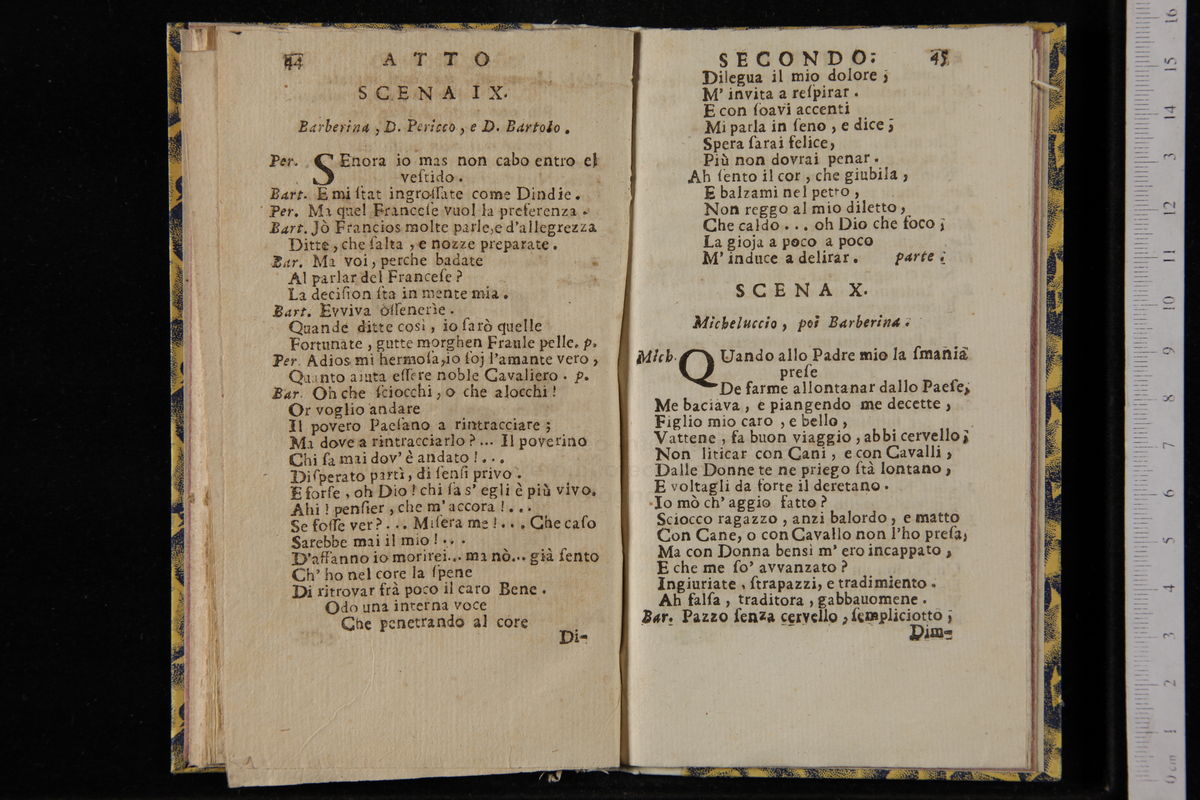 44 ATTO
SCENA IX.
Barberina, D. Pericco, e D. Bartolo.
Per. SEnora io mas non cabo entro el
veſtido.
Bart. E mi ſtat ingroſſate come Dindie.
Per. Ma quel Franceſe vuol la preferenza.
Bart. Jò Francios molte parle, e d'allegrezza
Ditte, che ſalta, e nozze preparate.
Bar. Ma voi, perche badate
Al parlar del Franceſe?
La deciſion ſta in mente mia.
Bart. Evviva oſſenerie.
Quande ditte così, io ſarò quelle
Fortunate, gutte morghen Fraule pelle. p.
Per. Adios mi hermoſa, io ſoj l'amante vero,
Quanto aiuta eſſere noble Cavaliero. p.
Bar. Oh che ſciocchi, o che alocchi!
Or voglio andare
Il povero Paeſano a rintracciare;
Ma dove a rintracciarlo?... Il poverino
Chi ſa mai dov' è andato!...
Diſperato partì, di ſenſi privo.
E forſe, oh Dio! chi ſa s' egli è più vivo.
Ahi! penſier, che m' accora!...
Se foſſe ver?... Miſera me!... Che caſo
Sarebbe mai il mio!...
D'affanno io morirei... ma nò... già ſento
Ch' ho nel core la ſpene
Di ritrovar frà poco il caro Bene.
Odo una interna voce
Che penetrando al core
Di-
SECONDO. 45
Dilegua il mio dolore;
M' invita a reſpirar.
E con ſoavi accenti
Mi parla in ſeno, e dice;
Spera ſarai felice,
Più non dovrai penar.
Ah ſento il cor, che giubila,
E balzami nel petto,
Non reggo al mio diletto,
Che caldo... oh Dio che foco;
La gioja a poco a poco
M' induce a delirar. parte.
SCENA X.
Micheluccio, poi Barberina.
Mich. QUando allo Padre mio la ſmania
preſe
De farme allontanar dallo Paeſe,
Me baciava, e piangendo me decette,
Figlio mio caro, e bello,
Vattene, fa buon viaggio, abbi cervello;
Non liticar con Cani, e con Cavalli,
Dalle Donne te ne priego ſtà lontano,
E voltagli da forte il deretano.
Io mò ch' aggio fatto?
Sciocco ragazzo, anzi balordo, e matto
Con Cane, o con Cavallo non l'ho preſa,
Ma con Donna bensì m' ero incappato,
E che me ſo' avvanzato?
Ingiuriate, ſtrapazzi, e tradimiento.
Ah falſa, traditora, gabbauomene.
Bar. Pazzo ſenza cervello, ſempliciotto;
Dim-